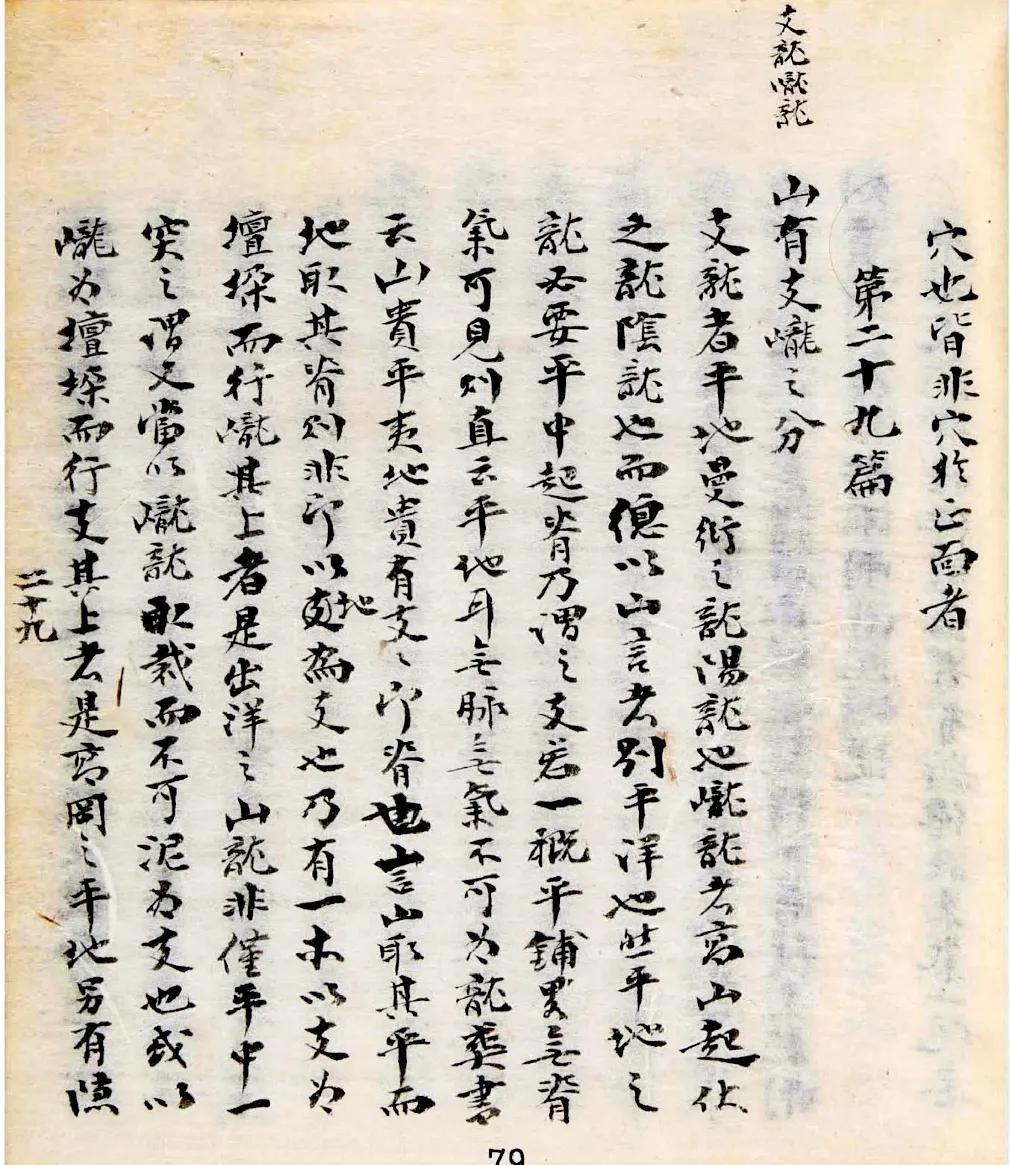 支龍巄龍
穴也皆非穴於正面者
第二十九篇
山有支巄之分
支龍者平地曼衍之龍陽龍也巄龍者高山起伏
之龍陰龍也而總以山言者別平洋也然平地之
龍必要平中起脊乃謂之支若一概平鋪畧無脊
氣可見則直云平地耳無脉無氣不可为龍葬書
云山貴平夷地貴有支〻卽脊也山言山取其平而
地取其脊則非卽以地为支也乃有一木以支为
壇垜而行巄其上者是出洋之山龍非僅平中一
突之謂又當以巄龍取裁而不可泥为支也或以
巄为壇垜而行支其上者是高岡之平地另有隱
二十九
79